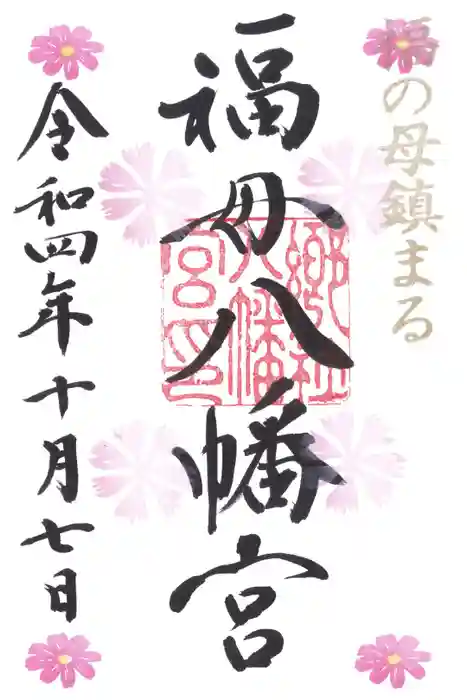 福の母鎮まる
福母八幡宮
郷社八幡宮印
令和四年十月七日